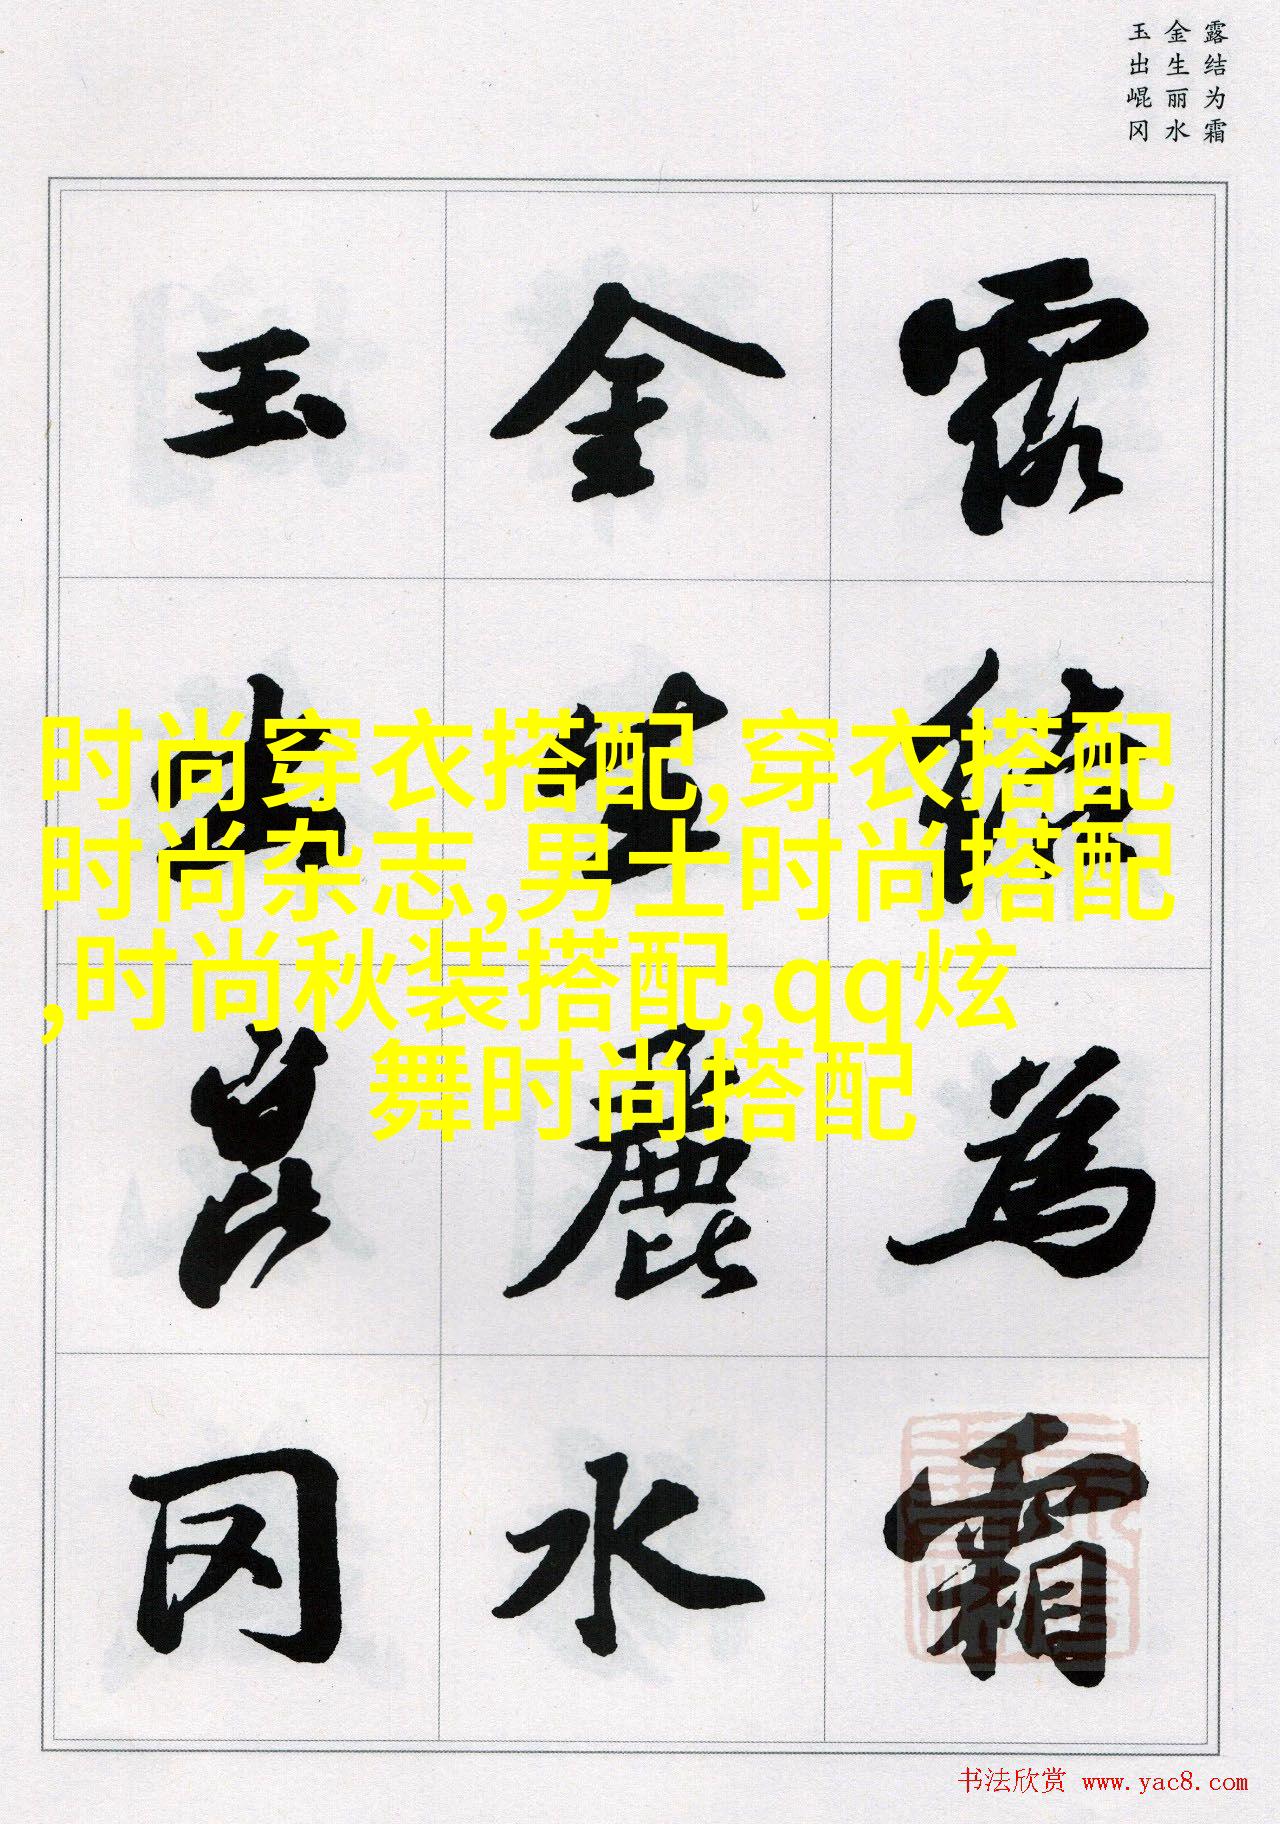 露结为霜
金生丽水
玉出崐冈
露结为霜
金生麗水
玉出崑冈
时尚穿衣搭配,穿衣搭配
时尚杂志,男士时尚搭配
,时尚秋装搭配,qq炫
舞时尚搭配
书法欣赏 www.yac8.com